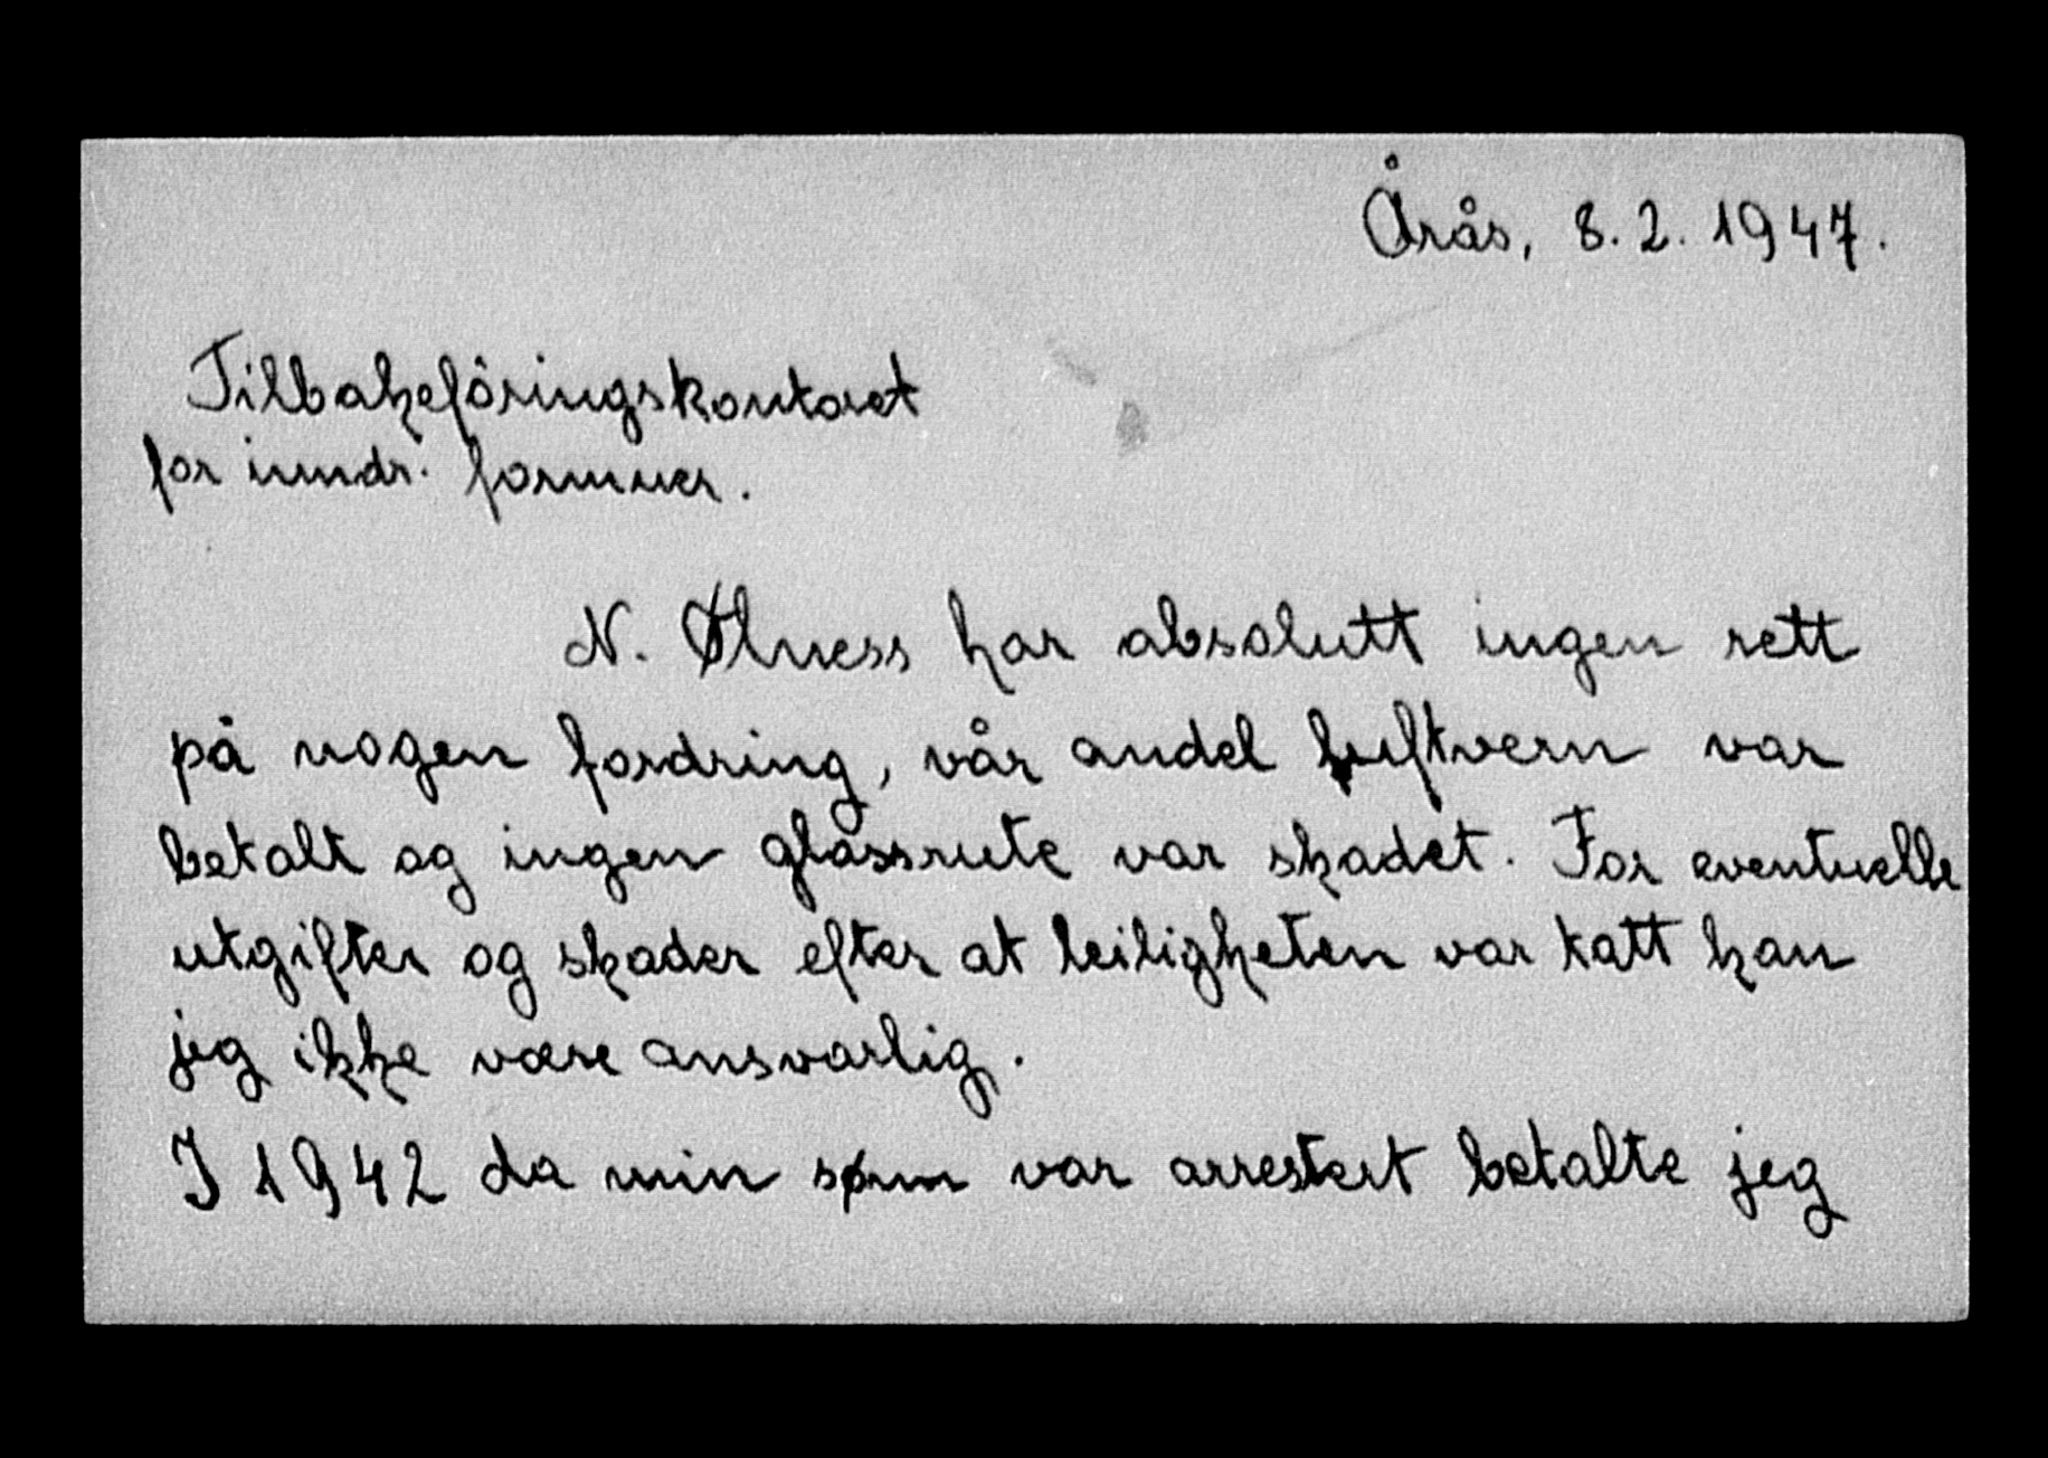 Årås, 8.2.1947.
Tilbakeföringskontoret
for inndr. formuer.
N. Ølness har absolutt ingen rett
på nogen fordring, vår andel luftvern var
betalt og ingen glassrute var skadet. For eventuelle
utgifter og skader efter at leiligheten var tatt kan
jeg ikke være ansvarlig.
I 1942 da min sønn var arrestert betalte jeg